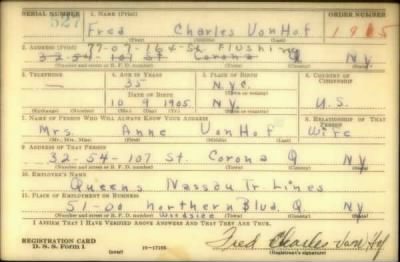 SERIAL NUMBER 1. NAME (Print) ORDER NUMBER
327 Fred Charles VanHof 1905
(First) (Middle) (Last)
2. ADDRESS (Print) 77-07-164-St Flushing
32-54-107 St Corona Q N.Y.
(Number and street or R. F. D. number) (Town) (County) (State)
3. TELEPHONE 4. AGE IN YEARS 5. PLACE OF BIRTH 6. COUNTRY OF CITIZENSHIP
35 N.Y.C.
DATE OF BIRTH
10 9 1905 N.Y. U.S.
(Exchange) (Number) (Mo.) (Day) (Yr.) (State or country)
7. NAME OF PERSON WHO WILL ALWAYS KNOW YOUR ADDRESS
Mrs. Anne VanHof Wife
(Mr., Mrs., Miss) (First) (Middle) (Last)
9. ADDRESS OF THAT PERSON
32-54-107 St. Corona Q NY
(Number and street or R. F. D. number) (Town) (County) (State)
10. EMPLOYER'S NAME
Queens Nassau Tr. Lines
11. PLACE OF EMPLOYMENT OR BUSINESS
51-00 Northern Blvd. Q. NY
(Number and street or R. F. D. number) Woodside (County) (State)
I AFFIRM THAT I HAVE VERIFIED ABOVE ANSWERS AND THAT THEY ARE TRUE.
REGISTRATION CARD
D. S. S. Form 1 (over) 16-17105 Fred Charles Van Hof
(Registrant's signature)